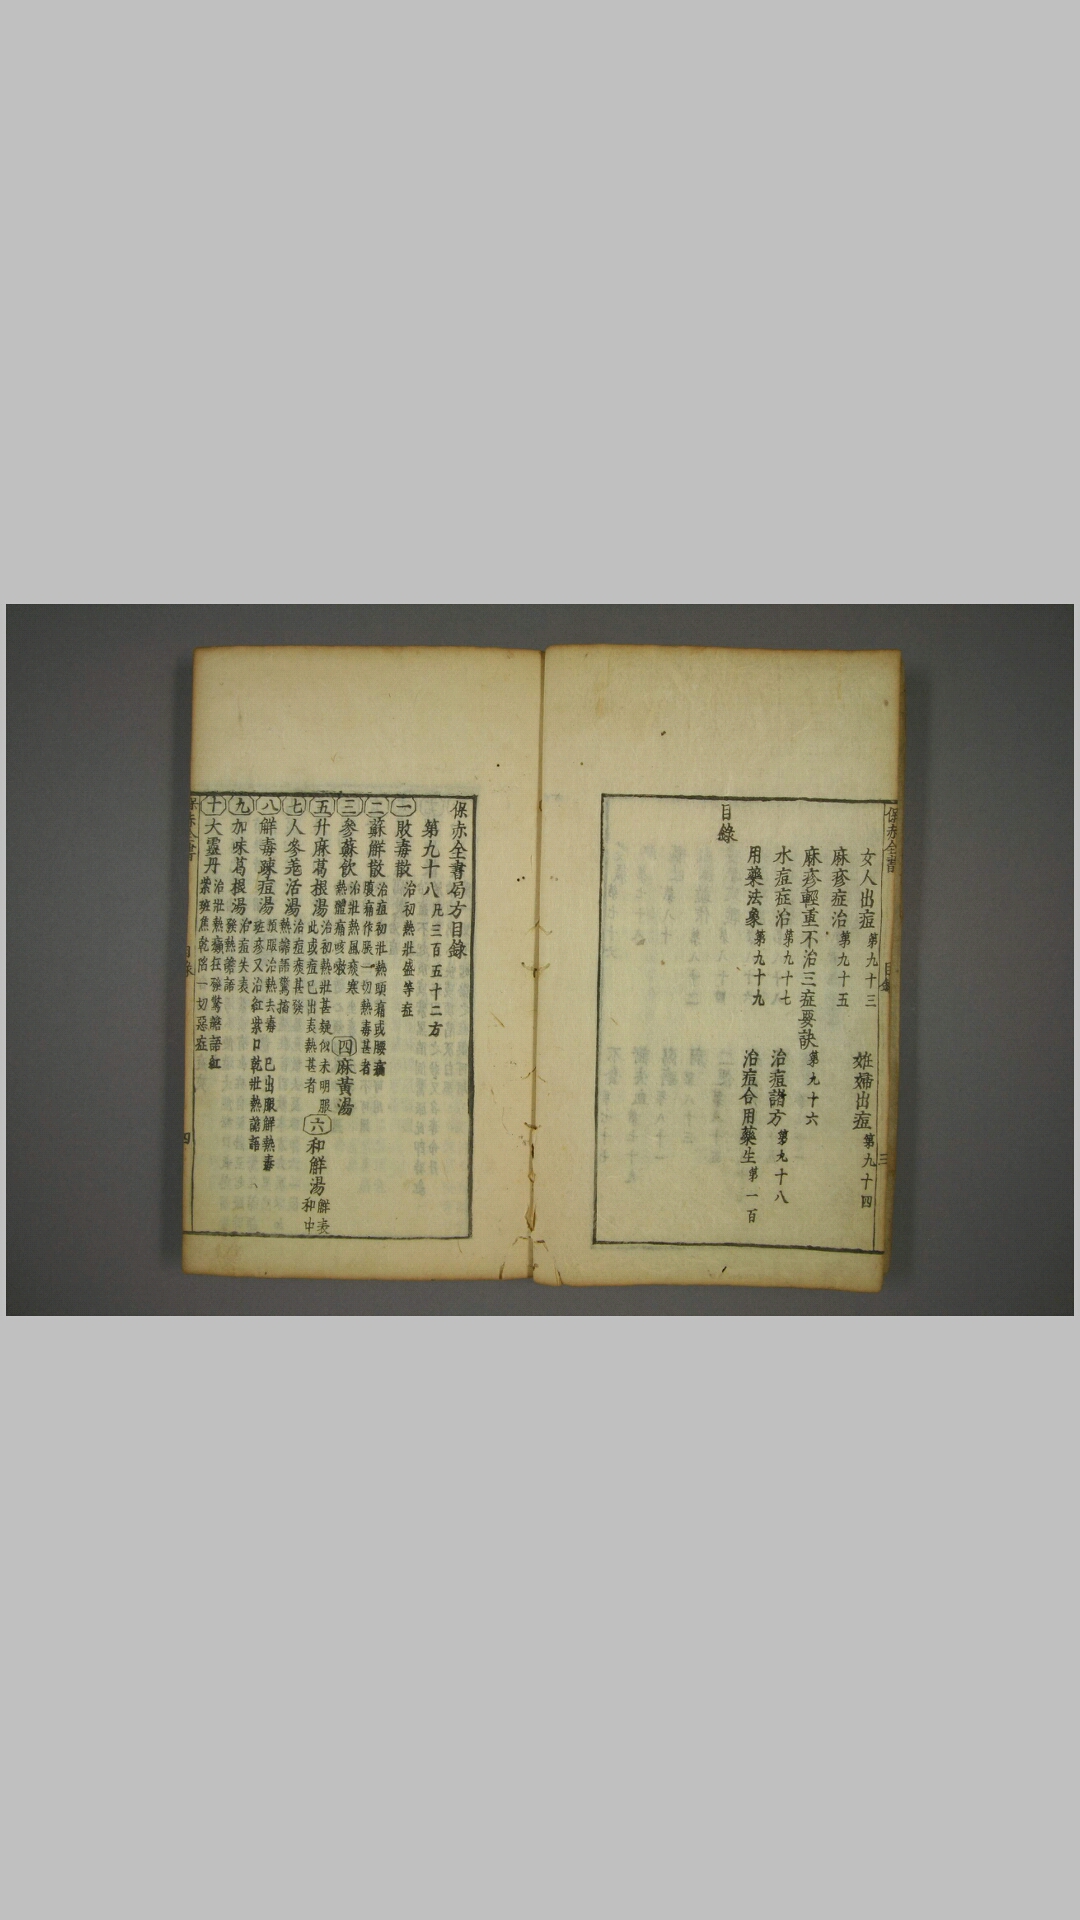 保赤全書
目錄
三
女人出痘第九十三
妊婦出痘第九十四
麻疹症治第九十五
麻疹輕重不治三症要訣第九十六
水痘症治第九十七
治痘諸方第九十八
用藥法象第九十九
治痘合用藥生第一百
目錄
保赤全書局方目錄
第九十八凡三百五十二方
一敗毒散治初熱壯盛等症
二蘇解散治痘初壯熱頭痛或腰痛
腹痛作脹一切熱毒甚者
三參蘇飲治壯熱風痰寒
熱體痛咳嗽
四麻黃湯
五升麻葛根湯治初熱壯甚疑似未明服
此或痘已出表熱甚者
六和解湯解表
和中
七人參羗活湯治痘痰甚發
熱譫語驚搐
八解毒疎痘湯頭服治熱去毒 已出服解熱毒
班疹又治紅紫口乾壯熱譫語
九加味葛根湯治痘失表
發熱譫語
十大靈丹治壯熱癲狂發驚譫語紅
紫班焦乾陷一切惡症
保赤全書
目錄
四